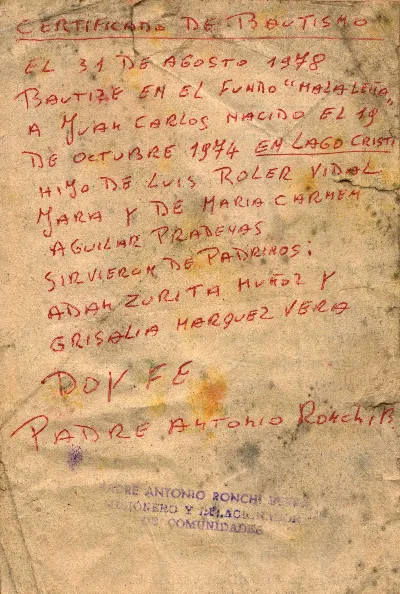 CERTIFICADO DE BAUTISMO
EL 31 DE AGOSTO 1978
BAUTIZE EN EL FUNDO "MALALEÑA"
A JUAN CARLOS NACIDO EL 19
DE OCTUBRE 1974 EN LAGO CRISTI
HIJO DE LUIS ROLER VIDAL
JARA Y DE MARIA CARMEN
AGUILAR PRADENAS
SIRVIERON DE PADRINOS:
ADAN ZURITA MUÑOZ Y
GRISALIA MARQUEZ VERA
DOY FE
PADRE ANTONIO RONCHI B.
ANTONIO RONCHI
Y
DE COMUNIDADES